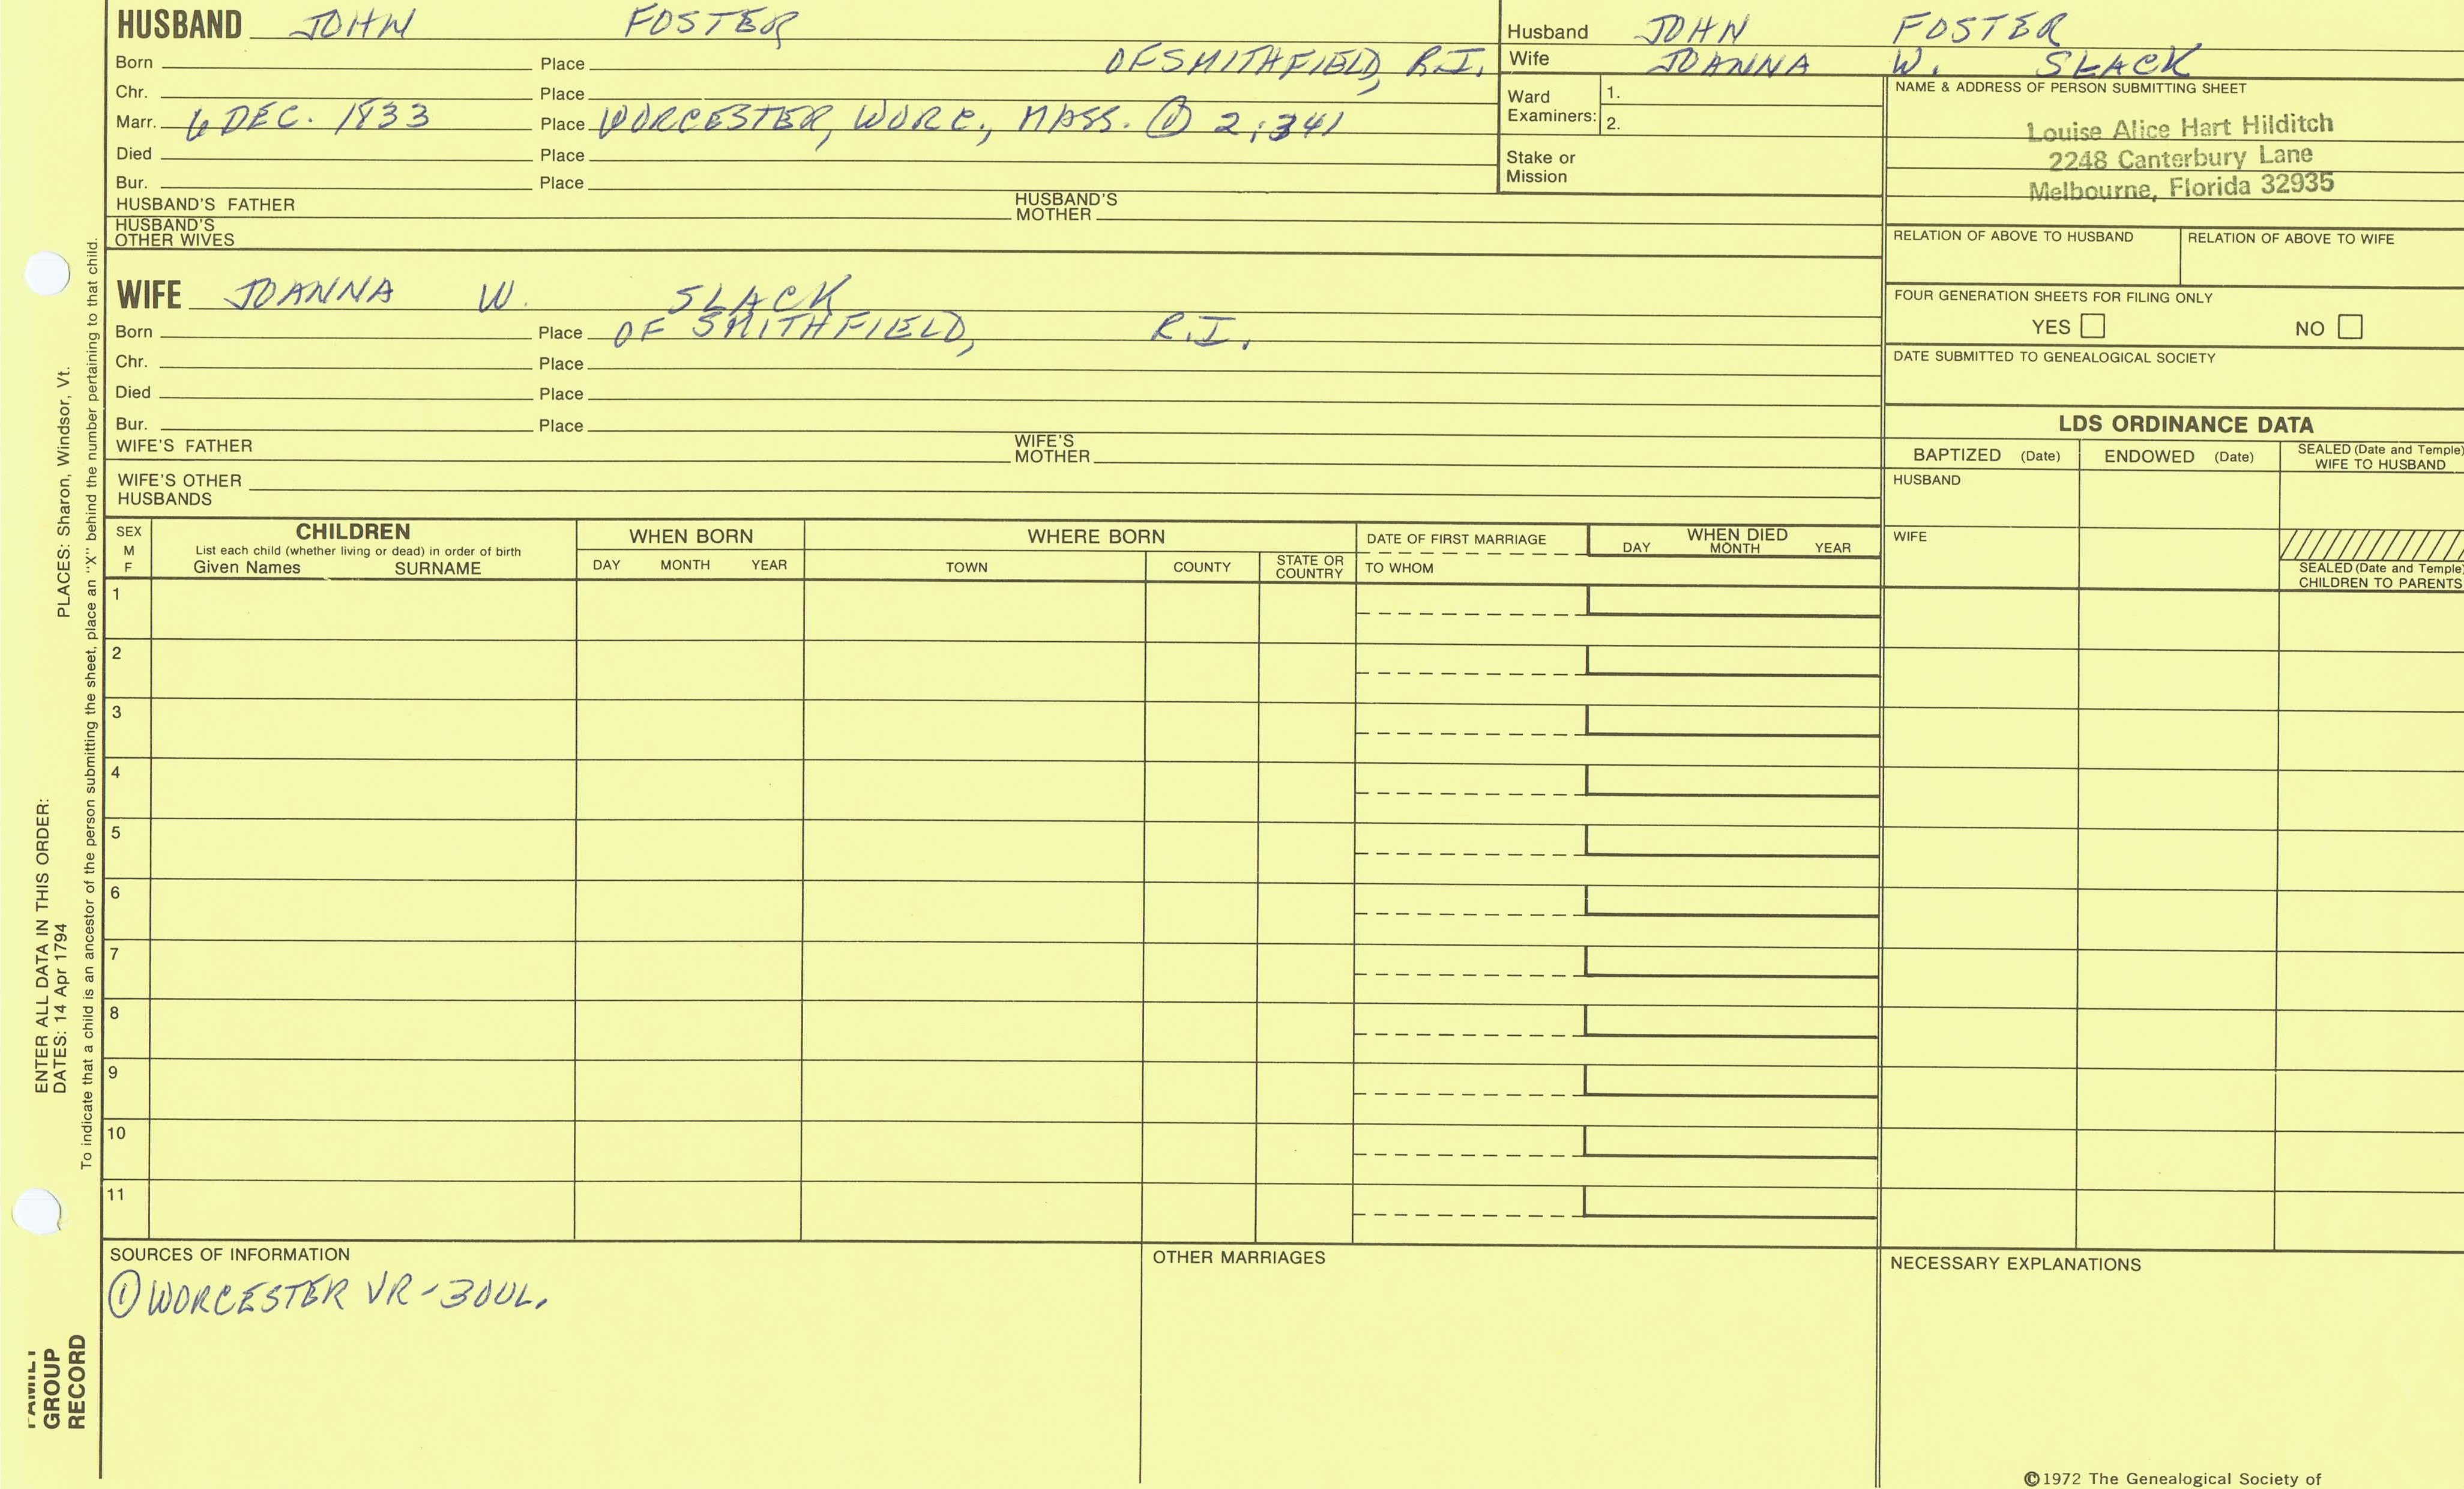 HUSBAND JOHN FOSTER
Born Place OF SMITHFIELD, R.I.
Chr. Place
Marr. 6 DEC. 1833 Place WORCESTER, WORC., MASS. ① 2:341
Died Place
Bur. Place
HUSBAND'S FATHER HUSBAND'S MOTHER
HUSBAND'S OTHER WIVES
Husband JOHN FOSTER
Wife JOANNA W. SLACK
Ward Examiners: 1.
2.
Stake or Mission
NAME & ADDRESS OF PERSON SUBMITTING SHEET
Louise Alice Hart Hilditch
2248 Canterbury Lane
Melbourne, Florida 32935
RELATION OF ABOVE TO HUSBAND RELATION OF ABOVE TO WIFE
FOUR GENERATION SHEETS FOR FILING ONLY
YES NO
DATE SUBMITTED TO GENEALOGICAL SOCIETY
WIFE JOANNA W. SLACK
Born Place OF SMITHFIELD, R.I.
Chr. Place
Died Place
Bur. Place
WIFE'S FATHER WIFE'S MOTHER
WIFE'S OTHER HUSBANDS
LDS ORDINANCE DATA
BAPTIZED (Date) ENDOWED (Date) SEALED (Date and Temple) WIFE TO HUSBAND
HUSBAND
WIFE
SEALED (Date and Temple) CHILDREN TO PARENTS
SEX M F
CHILDREN
List each child (whether living or dead) in order of birth
Given Names SURNAME
WHEN BORN
DAY MONTH YEAR
WHERE BORN
TOWN COUNTY STATE OR COUNTRY
DATE OF FIRST MARRIAGE
TO WHOM
WHEN DIED
DAY MONTH YEAR
1
2
3
4
5
6
7
8
9
10
11
SOURCES OF INFORMATION
① WORCESTER VR - 3 VOL.
OTHER MARRIAGES
NECESSARY EXPLANATIONS
©1972 The Genealogical Society of
FAMILY GROUP RECORD
ENTER ALL DATA IN THIS ORDER:
DATES: 14 Apr 1794 PLACES: Sharon, Windsor, Vt.
To indicate that a child is an ancestor of the person submitting the sheet, place an "X" behind the number pertaining to that child.